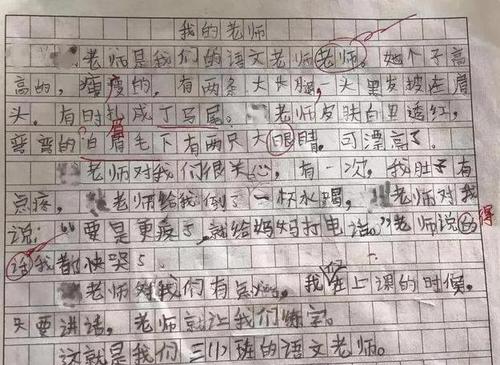 我的老师
老师是我们的语文老师老师。她个子高
高的，瘦瘦的，有两条大长腿，一头黑发披在肩
头。有时扎成丁马尾。老师皮肤白里透红，
弯弯的眉毛下有两只大眼睛，可漂亮了
老师对我们很关心，有一次，我肚子有
点疼，老师给我倒了一杯水喝，老师对我
说：“要是更疼了，就给妈妈打电话。”老师说的 得
话我都快哭了
老师对我们有点凶。我在上课的时候，
只要讲话，老师就让我们练字。
这就是我们三(1)班的语文老师。